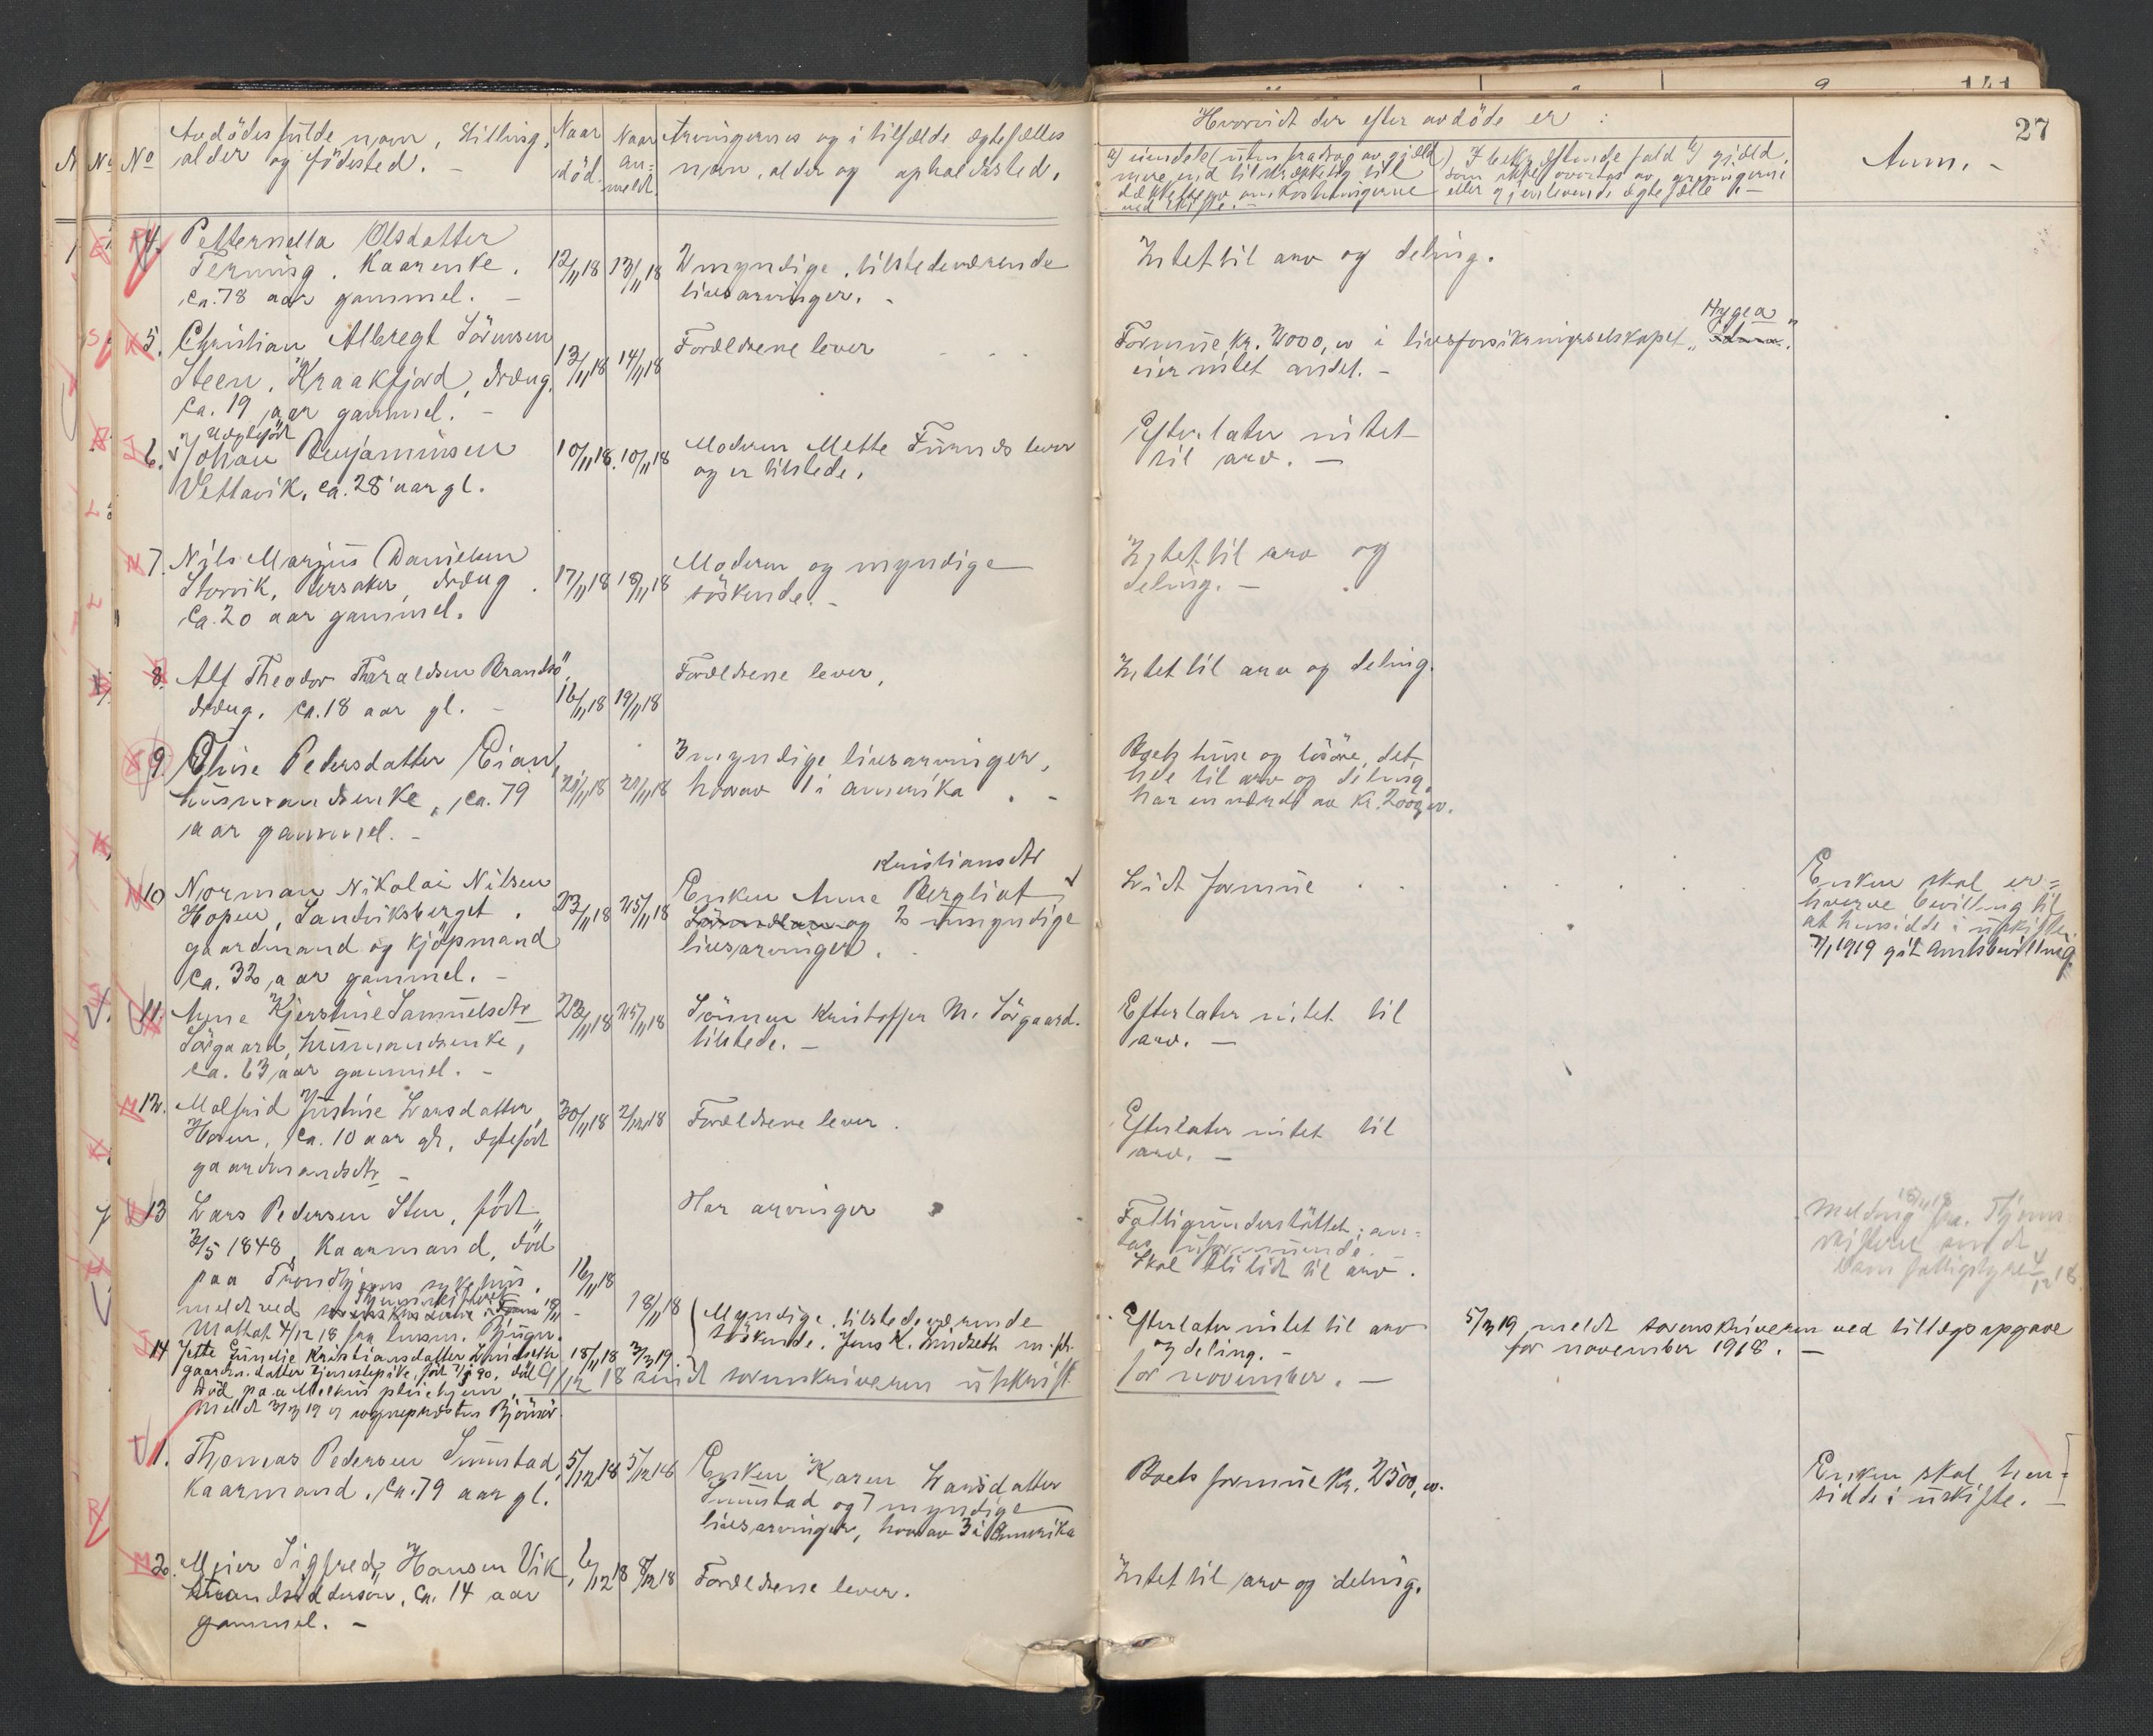 27
No
Avdödes fulde navn, stilling,
alder og födested. -
Naar
död.
Naar
an=
meldt.
Arvingernes og i tilfælde ægtefælles
navn, alder og opholdssted.
Hvorvidt der efter avdöde er :
a) eiendele (uten fradrag av gjæld)
mere end tilstrækkelig til
dækkelse av omkostningerne
ved skifte. -
b) I bekræftende fald gjæld,
som ikke overtas av arvingerne
eller gjenlevende ægtefælle. -
Anm. -
4. Petternella Olsdatter
Terning. Kaarenke.
ca. 78 aar gammel. -
12/11 18 13/11 18
2 myndige, tilstedeværende
livsarvinger. -
Intet til arv og deling.
5. Christian Albregt Sörensen
Steen, Kraakfjord, dræng,
ca. 19 aar gammel. -
13/11 18 14/11 18
Forældrene lever
Hygea
Formue kr. 2000,00 i livsforsikringsselskapet "Idun".
eier intet andet. -
uegtefödt
6. Johan Benjaminsen
Vettavik, ca. 28 aar gl.
10/11 18. 10/11 18
Moderen Mette lever
og er tilstede.
Efterlater intet
til arv. -
7. Nils Marius Danielsen
Storvik, dræng.
ca. 20 aar gammel.
17/11 18 18/11 18
Moderen og myndige
söskende. -
Intet til arv og
deling. -
8. Alf Theodor Haraldsen Brandsö,
dræng, ca. 18 aar gl. -
16/11 18 19/11 18
Forældrene lever,
Intet til arv og deling.
9. Eline Pedersdatter Eian,
husmandsenke, ca. 79
aar gammel. -
21/11 18 21/11 18
3 myndige livsarvinger,
hvorav 1 i Amerika. -
Boets huse og lösöre, det
hele til arv og deling,
har en værdi av kr. 200,00.
10 Norman Nikolai Nilsen
Hopen, Sandviksberget.
gaardmand og kjöpmand
ca. 32 aar gammel. -
23/11 18 25/11 18
Kristiansdtr
Enken Anne Bergliot
og 2 umyndige
livsarvinger.
Lidt formue
Enken skal er=
hverve bevilling til
at hensidde i uskifte.
7/1 1919 git Amtsbevilling.
11. Anne Kjerstine Samuelsdtr
Sörgaard, husmandsenke,
ca. 63 aar gammel. -
23/11 18 25/11 18
Sönnen Kristoffer M. Sörgaard.
tilstede. -
Efterlater intet til
arv. -
12. Malfrid Justine Larsdatter,
Hoven, ca. 10 aar gl., ægtefödt
gaardmandsdtr -
30/11 18 2/12 18
Forældrene lever.
Efterlater intet til
arv. -
13 Lars Pedersen Sten, födt
3/5 1848, Kaarmand, död
paa Trondhjems sykehus.
meldt ved 18/11
Mottat 4/12 18 fra lensm. Bjugn.
16/11 18
18/11 18
Har arvinger
Fattigunderstöttet; an=
tas uformuende. -
Skal bli lidt til arv.
Melding 18/11 18 fra Thjem
skifteret sendt
lensm fattigstyret 4/12 18
14 Jette Gundie Kristiansdatter Lindseth
gaardm.datter tjenestepike, födt 7/5 90, död
Död paa Melhus pleiehjem, -
Meldt 3/3 19 av sogneprosten Bjönör.
15/11 18 3/3 19.
Myndige, tilstedeværende
söskende. Jens K. Lindseth m. fl.
Efterlater intet til arv
og deling. -
5/3 19 meldt sorenskriveren ved tillægsopgave
for november 1918. -
9/12 18 sendt sorenskriveren utskrift
for november. -
1. Thomas Pedersen Sumstad
Kaarmand. ca. 79 aar gl.
5/12 18 5/12 18
Enken Karen Larsdatter
Sumstad og 7 myndige
livsarvinger, hvorav 3 i Amerika
Boets formue kr. 2500,00.
Enken skal hen=
sidde i uskifte. -
2. Meier Sigfred Hansen Vik,
ca. 14 aar
gammel. -
6/12 18 8/12 18
Forældrene lever.
Intet til arv og deling.